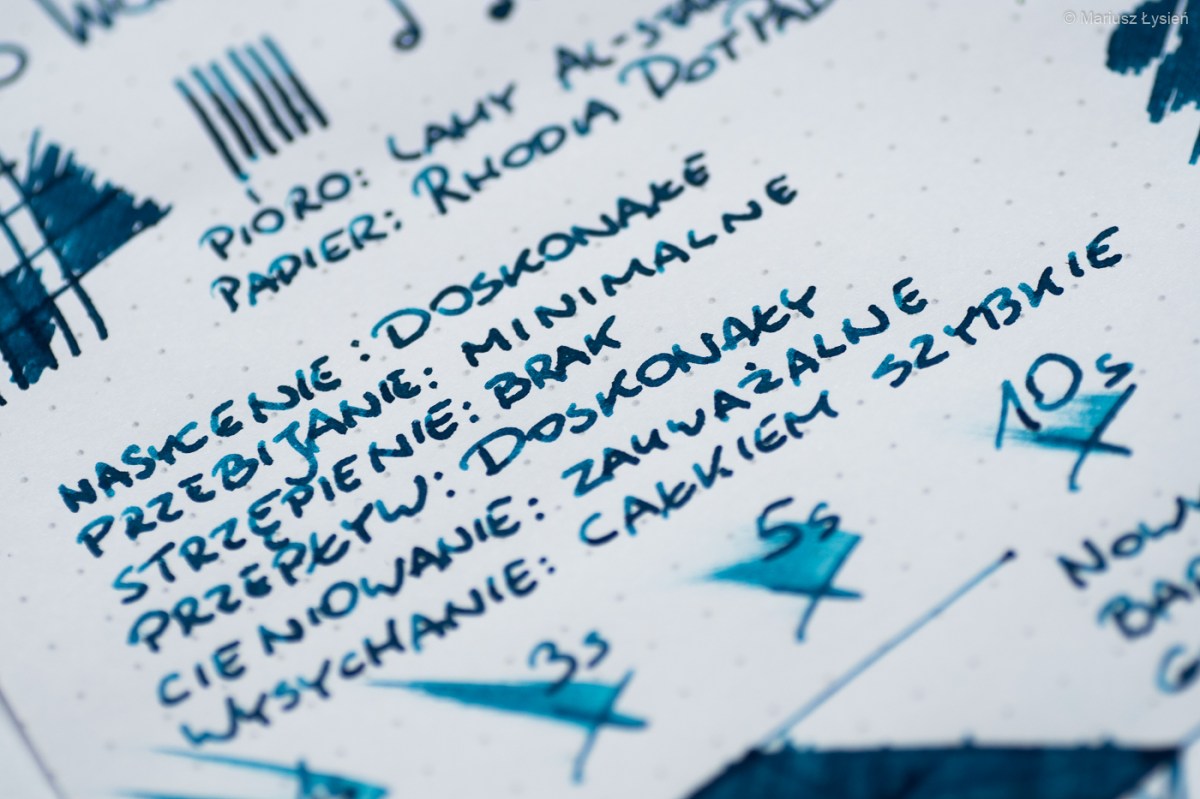 © Mariusz Łysień
PIÓRO: LAMY AL-STAR
PAPIER: RHODIA DOTPAD
NASYCENIE: DOSKONAŁE
PRZEBIJANIE: MINIMALNE
STRZĘPIENIE: BRAK
PRZEPŁYW: DOSKONAŁY
CIENIOWANIE: ZAUWAŻALNE
WYSYCHANIE: CAŁKIEM SZYBKIE
10s
5s
3s